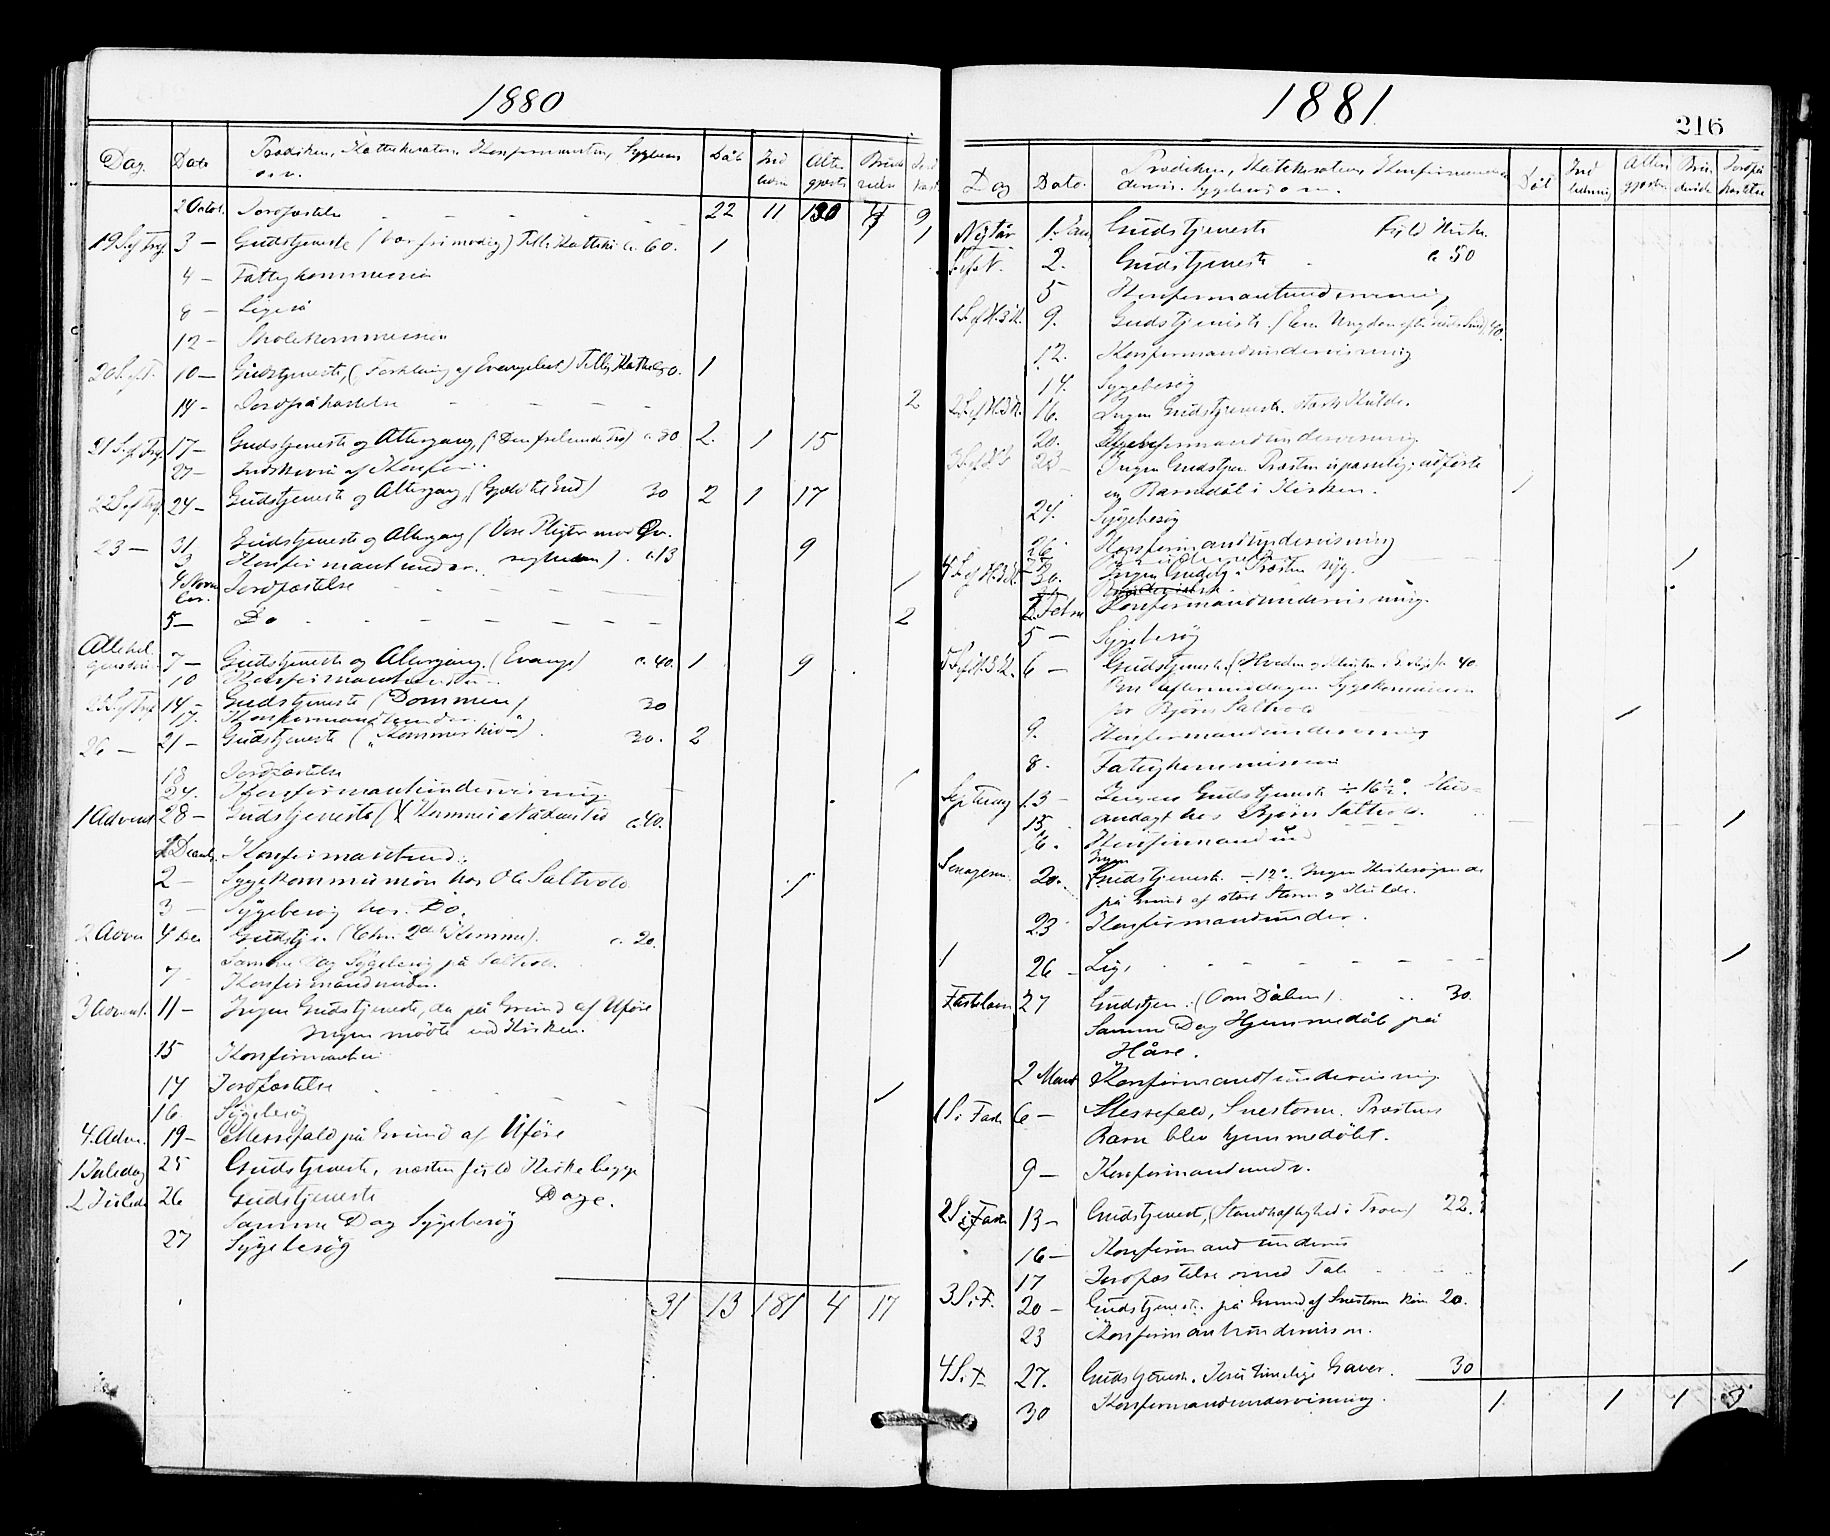 1880
Dag. Dato Prædiken, Katekisation, Konfirmanter, Sygebes. Dåb Ind Alter Brude Jord
o.s.v. gjæster
2 Octob. Jordfæstelse 22 11 130 4 9
19 S. ef. Tr. 3 — Gudstjeneste (Vær frimodig) c. 60. 1 1
4 — Fattigkommission
8 — Ligeså
12 — Skolekommission
20 S. ef. T. 10 — Gudstjeneste, (Forklaring af Evangeliet) 1
14 — Jordpåkastelse 2
21 S. ef. Tr. 17 — Gudstjeneste og Altergang, (Den frelsende Tro) c. 80 2. 1 15
27 — Indskriv. af Konfir.
22 S. ef. Tr. 24 — Gudstjeneste og Altergang, 30 2 1 17
23 — 31. Gudstjeneste og Altergang (Vore Pligter mod Øv-
3 Konfirmantunder. righeden). c. 13 9
4 Novem
ber. Jordfæstelse 1
5 — Do 2
Allehel
gensdag 7 — Gudstjeneste og Altergang. (Evang.) c. 40. 1 9
10 Konfirmantunder.
25 S. ef. Tr. 14 — Gudstjeneste (Dommen) 30
17. Konfirmandunder.
26 — 21 — Gudstjeneste ("Kommer hid—") 30. 2
18 Jordfæstelse 1
24. Konfirmantundervisning
1 Advent 28 — Gudstjeneste ( c. 40.
1 Decemb. Konfirmantund.
2 — Sygekommunion hos Ole Saltvold 1
3 — Sygebesøg hos Do.
2 Adven 4 Dec Gudstje. (Chr. 2det Komme). c. 20.
Samme Dag Sygebesøg på Saltvold.
7 — Konfirmandunder.
3 Advent. 11 — Ingen Gudstjeneste, da på Grund af Uføre
Ingen mødte ved Kirken.
15 Konfirmanter
14 Jordfæstelse 1
16 Sygebesøg
4. Adve. 19 — Messefald på Grund af Uføre
1 Juledag 25 Gudstjeneste, næsten fyld Kirke begge
2 Juleda 26 Gudstjeneste Dage.
Samme Dag Sygebesøg
27 Sygebesøg
31 13 181 4 17
1881
216
Dag Dato. Prædiken, Katekisation, Konfirmand
undervis. Sygebesøg o.s.v. Dåb Ind Alter Bru Jordpå
ledning gjæster devielse kastelse
Nytår 1. Jan. Gudstjeneste Fyld Kirke.
S. ef. N. 2. Gudstjeneste c. 50
5 Konfirmantundervisning
1 S. ef. H. 3 K. 9. Gudstjeneste. 40.
12. Konfirmandundervisning
14. Sygebesøg
2 S. ef. H. 3 K. 16. Ingen Gudstjeneste. stærk Kulde.
20. Konfirmandundervisning
3 S. ef. H. 3 23 — Ingen Gudstjen. Præsten upasselig; udførte
en Barnedåb i Kirken. 1
24. Sygebesøg
26 Konfirmantundervisning
4 S. ef. H. 3 K. 30. Ingen Gudstj. Præsten syg. 1
2. Febru Konfirmandundervisning.
5 — Sygebesøg
5 S. ef. H. 3 K. 6 — Gudstjeneste. (Hveden og Klinten) 40.
Om Eftermiddagen Sygekommunion
for Bjørn Saltvold 1
9. Konfirmandundervisning
8. Fattigkommission
Septuag 13 — Ingen Gudstjeneste ÷ 16½°. Hus-
15. andagt hos Bjørn Saltvold. 1
16. Konfirmandund
Sexagesim. 20. Ingen Gudstjeneste. — 12°. Ingen Kirkesøgende
på Grund af stærk Storm og Kulde.
23 Konfirmandunder.
1 26 — Lig 1
Fastelavn 27 Gudstjen. (Om Dåben). 30.
Samme Dag Hjemmedåb på
Håve.
2 Marts Konfirmandundervisning
1 S. i Fast 6 — Messefald, Snestorm. Præstens
Barn blev hjemmedøbt.
9 — Konfirmandunderv.
2 S. i Faste 13 — Gudstjenest, (Standhaftighed i Troen) 22.
16 — Konfirmand undervis
17 Jordfæstelse med Tale 1
3 S. i F. 20 — Gudstjeneste. på Grund af Snestorm kun 20.
23 Konfirmantundervison.
4 S. i F. 27. Gudstjeneste. Jesu timelige Gaver. 30
30 Konfirmandundervisning. 1 1 1 3